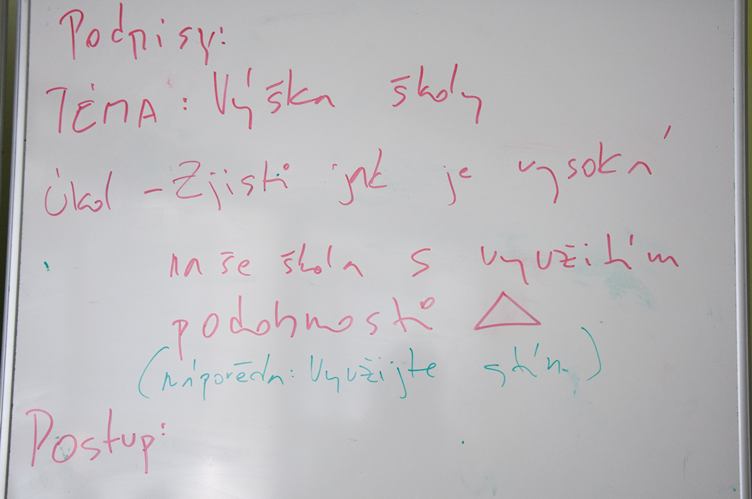 Podpisy:
TÉMA: Výška školy
Úkol - Zjisti jak je vysoká
naše škola s využitím
podobnosti △
(nápověda: Využijte stín)
Postup: